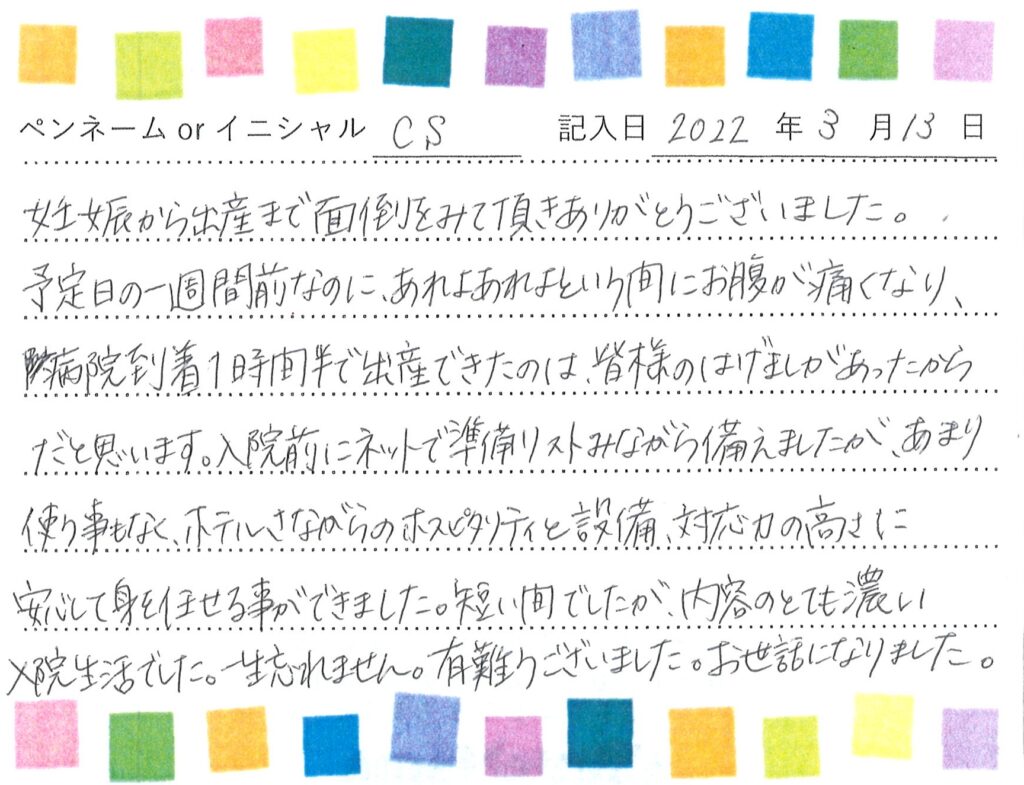 ペンネーム or イニシャル CS 記入日 2022 年 3 月 13 日
妊娠から出産まで面倒をみて頂きありがとうございました。
予定日の一週間前なのに、あれよあれよという間にお腹が痛くなり、
病院到着1時間半で出産できたのは、皆様のはげましがあったから
だと思います。入院前にネットで準備リストみながら備えましたが、あまり
使う事もなく、ホテルさながらのホスピタリティと設備、対応力の高さに
安心して身を任せる事ができました。短い間でしたが、内容のとても濃い
入院生活でした。一生忘れません。有難うございました。お世話になりました。